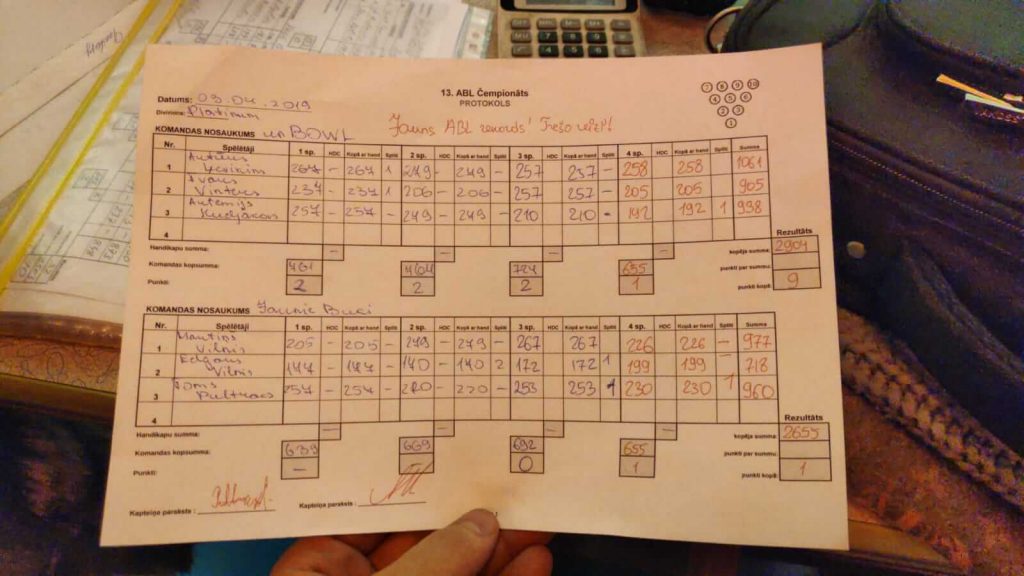 13. ABL Čempionāts
PROTOKOLS
Datums: 03.04.2019
Divīzions: Platinum
Jauns ABL rekords! Trešo reizi!
KOMANDAS NOSAUKUMS un BOWL
Nr. Spēlētāji 1 sp. HDC Kopā ar hand Spliti 2 sp. HDC Kopā ar hand Spliti 3 sp. HDC Kopā ar hand Spliti 4 sp. HDC Kopā ar hand Spliti Summa
1 267 – 267 1 279 – 279 – 257 257 – 258 258 1061
2 Ivars Vinters 237 – 237 1 206 – 206 – 257 257 – 205 205 905
3 Artemijs Hudjakovs 257 – 257 – 249 – 249 – 210 210 – 192 192 1 938
4
Rezultāts
Handikapu summa: – – – – kopēja summa: 2904
Komandas kopsumma: 724 655 punkti par summu:
Punkti: 2 2 2 1 punkti kopā: 9
KOMANDAS NOSAUKUMS Jaunie Buki
Nr. Spēlētāji 1 sp. HDC Kopā ar hand Spliti 2 sp. HDC Kopā ar hand Spliti 3 sp. HDC Kopā ar hand Spliti 4 sp. HDC Kopā ar hand Spliti Summa
1 Martins Vilnis 205 – 205 – 279 – 279 – 267 267 – 226 226 – 977
2 Edgars Vilnis 147 – 147 – 140 – 140 2 172 172 1 199 199 – 718
3 Toms Pultraks 257 – 257 – 220 – 220 – 253 253 1 230 230 1 960
4
Rezultāts
Handikapu summa: – – – – kopēja summa: 2655
Komandas kopsumma: 639 669 692 655 punkti par summu:
Punkti: – 0 1 punkti kopā: 1
Kapteiņa paraksts : Kapteiņa paraksts :